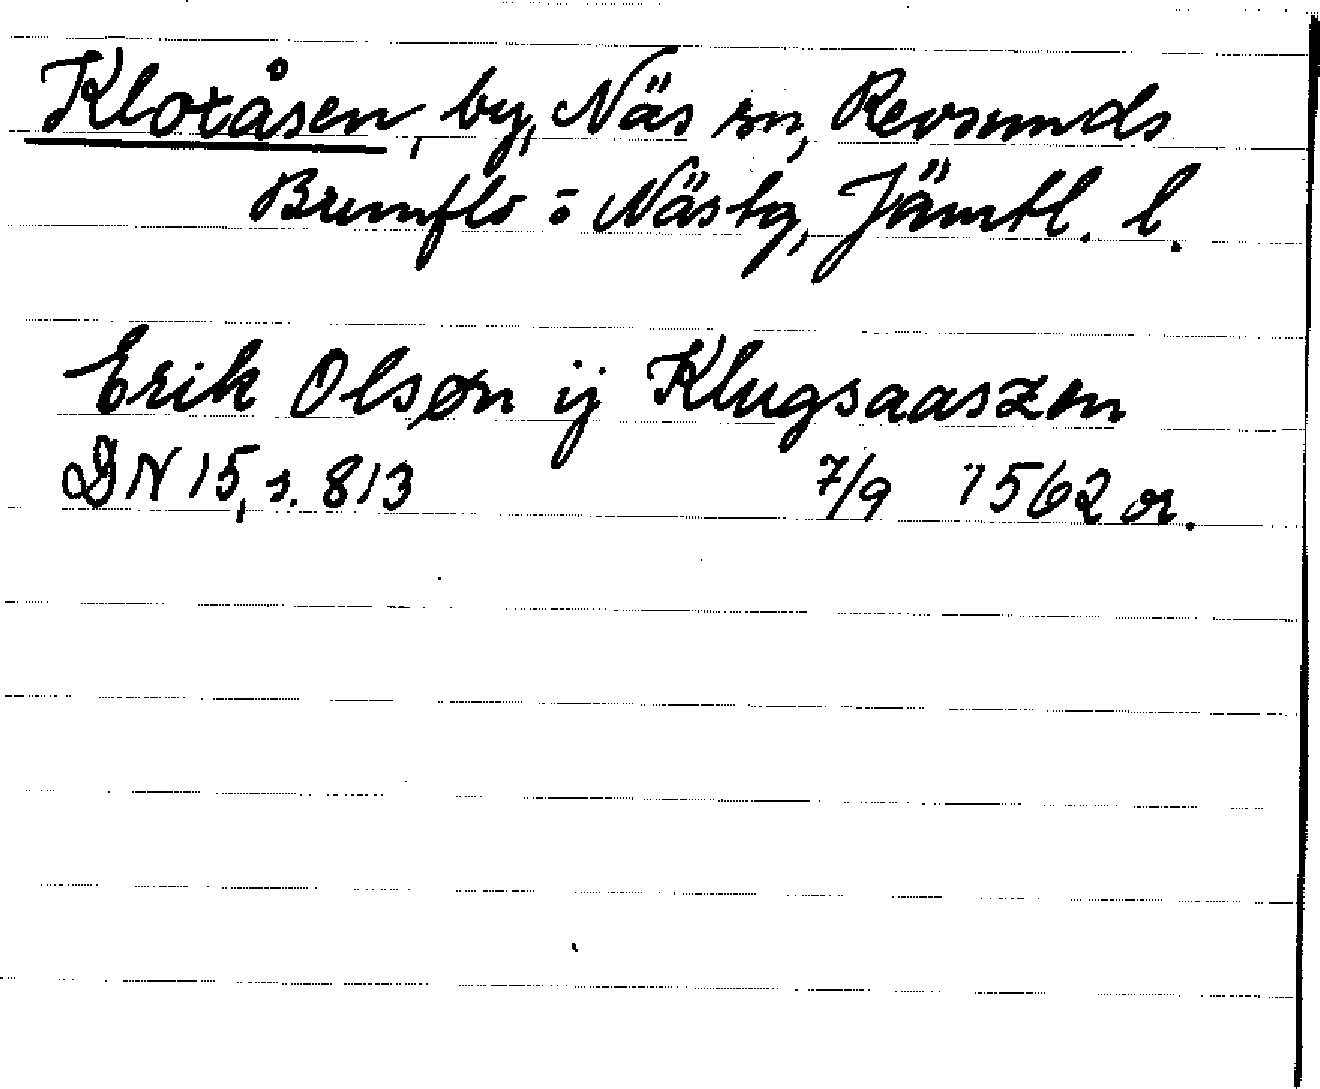 Kloxåsen, by, Näs sn, Revsunds
Brunflo o Näs tg, Jämtl. l.
Erik Olsøn ij Klugsaaszen
DN 15, s. 813 7/9 1562 or.